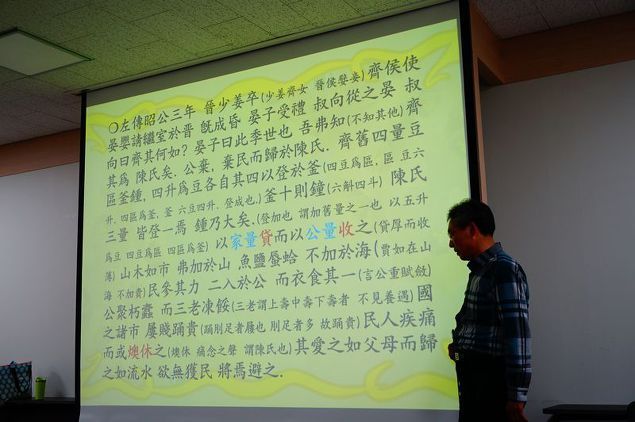 〇左傳昭公三年 晉少姜卒(少姜齊女 晉侯嬖妾) 齊侯使
晏嬰請繼室於晉 旣成昏 晏子受禮 叔向從之晏 叔
向曰齊其何如? 晏子曰此季世也 吾弗知(不知其他) 齊
其爲 陳氏矣. 公棄, 棄民而歸於陳氏. 齊舊四量豆
區釜鍾, 四升爲豆各自其四以登於釜(四豆爲區, 區 豆六
升, 四區爲釜, 釜 六豆四升, 登成也.) 釜十則鍾(六斛四斗) 陳氏
三量 皆登一焉 鍾乃大矣. (登加也 謂加舊量之一也 以五升
爲豆 四豆爲區 四區爲釜) 以家量貸而以公量收之(貸厚而收
薄) 山木如市 弗加於山 魚鹽蜃蛤 不加於海(賈如在山
海 不加貴) 民參其力 二入於公 而衣食其一(言公重賦斂)
公聚朽蠹 而三老凍餒(三老謂上壽中壽下壽者 不見養遇) 國
之諸市 屨賤踊貴(踊刖足者屨也 刖足者多 故踊貴) 民人疾痛
而或燠休之(燠休 痛念之聲 謂陳氏也) 其愛之如父母而歸
之如流水 欲無獲民 將焉避之.